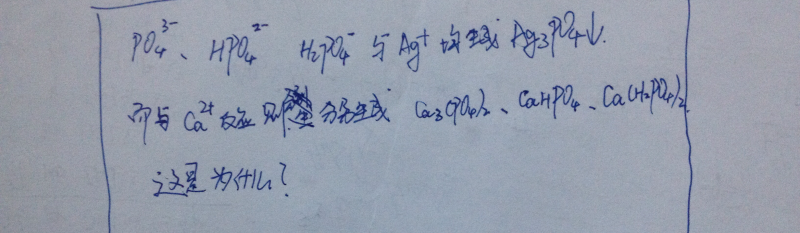 PO₄³⁻、HPO₄²⁻ H₂PO₄⁻与Ag⁺均生成Ag₃PO₄↓.
而与Ca²⁺反应则分别生成Ca₃(PO₄)₂、CaHPO₄、Ca(H₂PO₄)₂
这是为什么?